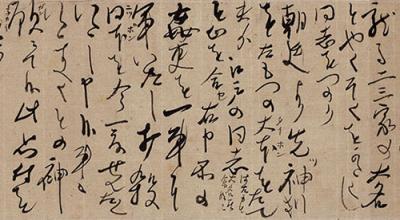 龍馬二三家の大名
とやくそくをかたくし
同志をつのり
朝廷より先ヅ神州
をたもつの大本をたて
夫より江戸の同志
と心を合セ右申所の
姦吏を一事に
軍いたし打殺
日本を今一度せんたく
いたし申候事ニ
いたすべくとの神
願ニて候此思付を